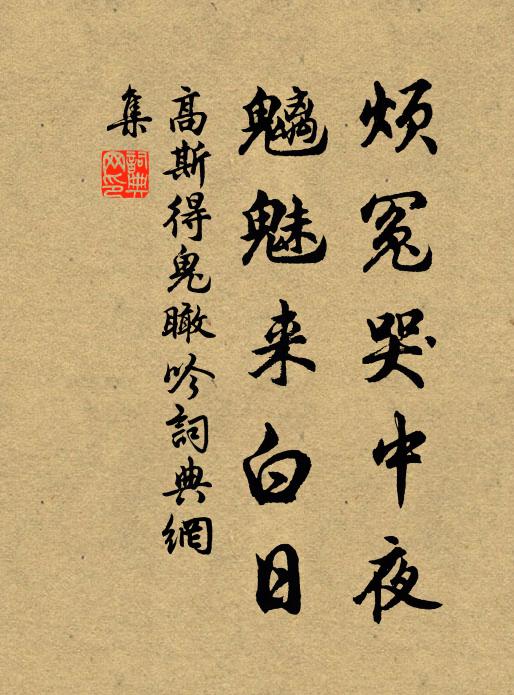 烦冤哭中夜
魑魅来白日
高斯得鬼瞰吟詞典網
集
詞典
网印